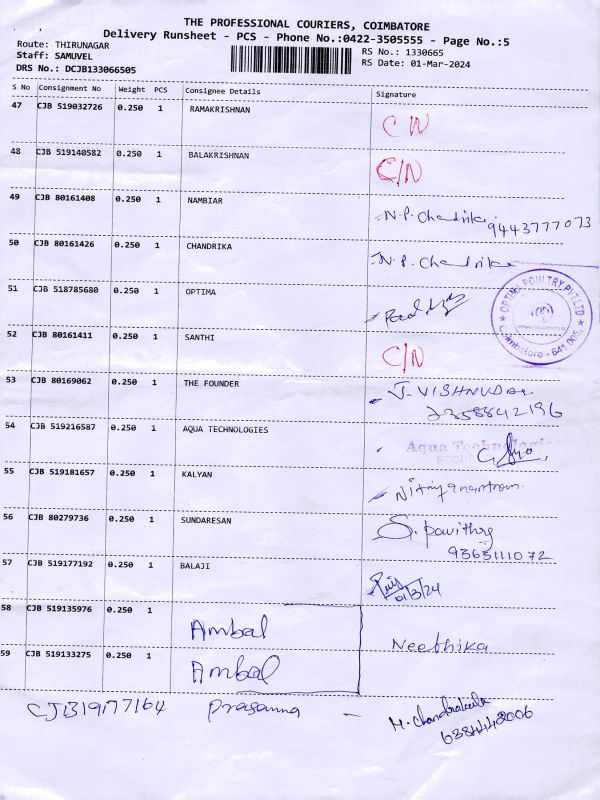 THE PROFESSIONAL COURIERS, COIMBATORE
Delivery Runsheet - PCS - Phone No.:0422-3505555 - Page No.:5
Route: THIRUNAGAR
Staff: SAMUVEL
DRS No.: DCJB133066505
RS No.: 1330665
RS Date: 01-Mar-2024
S No Consignment No Weight PCS Consignee Details Signature
47 CJB 519032726 0.250 1 RAMAKRISHNAN C N
48 CJB 519140582 0.250 1 BALAKRISHNAN C/N
49 CJB 80161408 0.250 1 NAMBIAR N.P. Chandrika 9443777073
50 CJB 80161426 0.250 1 CHANDRIKA N.P. Chandrika
51 CJB 518785680 0.250 1 OPTIMA
OPTIMA POULTRY PVT LTD
Coimbatore - 641 005
52 CJB 80161411 0.250 1 SANTHI C/N
53 CJB 80169062 0.250 1 THE FOUNDER J. VISHNUDAL
7358842196
54 CJB 519216587 0.250 1 AQUA TECHNOLOGIES Aqua Technologies
55 CJB 519181657 0.250 1 KALYAN
56 CJB 80279736 0.250 1 SUNDARESAN S. pavithra
9363111072
57 CJB 519177192 0.250 1 BALAJI
01/3/24
58 CJB 519135976 0.250 1 Ambal
Neethika
59 CJB 519133275 0.250 1 Ambal
CJB19177164 Prasanna - M. Chandrakala
6384448006